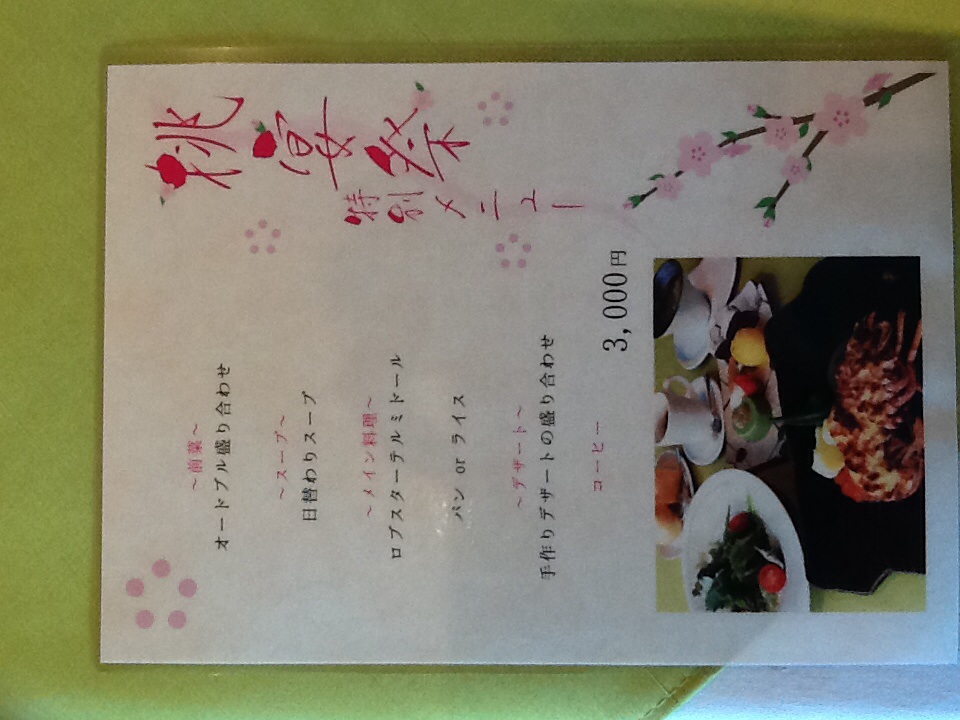 桃宴祭
特別メニュー
～前菜～
オードブル盛り合わせ
～スープ～
日替わりスープ
～メイン料理～
ロブスターテルミドール
パン or ライス
～デザート～
手作りデザートの盛り合わせ
コーヒー
3,000円